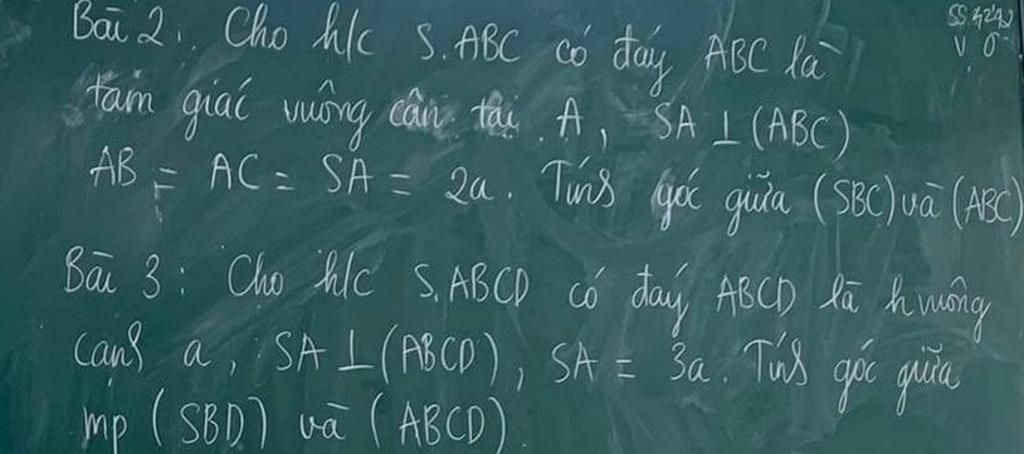 Bài 2: Cho h/c S.ABC có đáy ABC là
tam giác vuông cân tại A, SA ⊥ (ABC)
AB = AC = SA = 2a. Tính góc giữa (SBC) và (ABC)
Bài 3: Cho h/c S.ABCD có đáy ABCD là h vuông
cạnh a, SA ⊥ (ABCD), SA = 3a. Tính góc giữa
mp (SBD) và (ABCD).